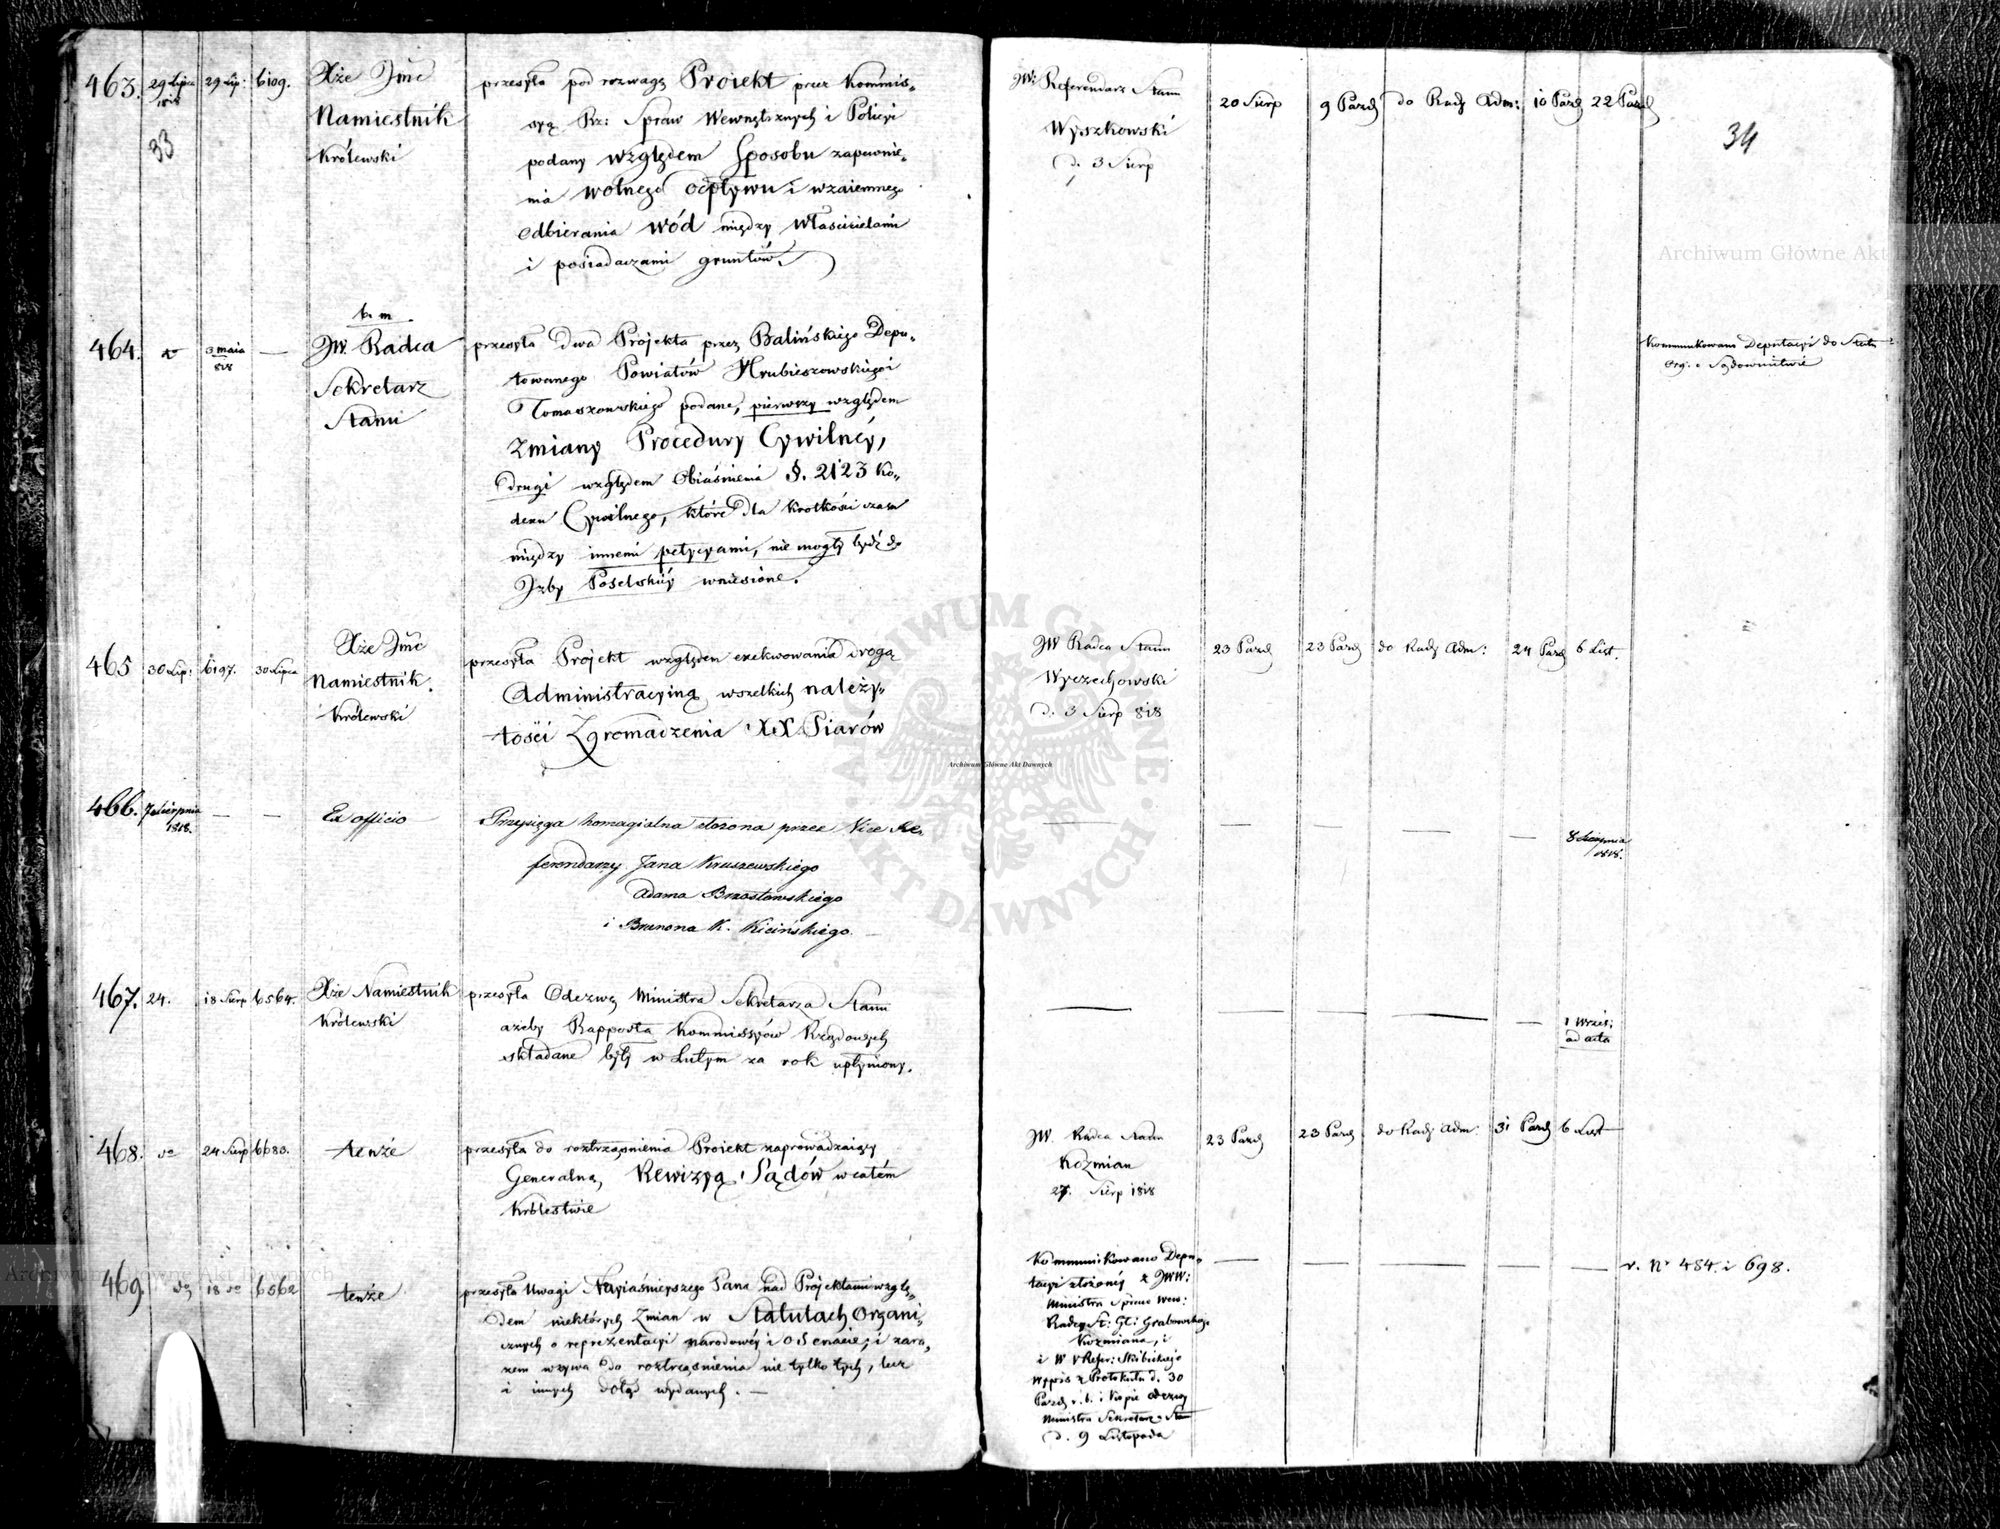 463. 29 Lipca 1818 29 Lip: 6109. Xże Jmć
Namiestnik
Królewski
33
przesyła pod rozwagę Proiekt przez Kommis„
syą Rz: Spraw Wewnętrznych i Policyi
podany względem Sposobu zapewnie„
nia wolnego odpływu i wzaiemnego
odbierania wód między Właścicielami
i posiadaczami gruntów.
JW: Referendarz Stanu
Wyszkowski
d. 3 Sierp
20 Sierp 9 Pazd do Rady Adm: 10 Pazd 22 Pazd
34
464. 3 maia 818 —
b. m.
JW. Radca
Sekretarz
Stanu
przesyła dwa Projekta przez Balińskiego Depu„
towanego Powiatów Hrubieszowskiego i
Tomaszowskiego podane, pierwszy względem
Zmiany Procedury Cywilnéy,
drugi względem Obiaśnienia §. 2123 Ko„
dexu Cywilnego, które dla krotkości czasu
między innemi petycyami, nie mogły bydź do
Izby Poselskiéy wniesione.
Kommunikowano Deputacyi do Stat:
Org: o Sądownictwie
465 30 Lip: 6197. 30 Lipca
Xże Jmć
Namiestnik.
Królewski
przesyła Projekt względem exekwowania drogą
Administracyiną wszelkich należy„
tości Zgromadzenia XX. Piarów
JW Radca Stanu
Wyczechowski
d. 3 Sierp 818
23 Pazd 23 Pazd do Rady Adm: 24 Pazd 6 List.
466. 7 Sierpnia 1818. — — Ex officio
Przysięga homagialna złożona przez Vice Re„
ferendarzy Jana Kruszewskiego
Adama Brzostowskiego
i Brunona K. Kicińskiego. —
— — — — — 8 Sierpnia 1818.
467. 24. 18 Sierp 6564.
Xże Namiestnik
Królewski
przesyła Odezwę Ministra Sekretarza Stanu
ażeby Rapporta Kommissyów Rządowych
składane były w Lutym za rok upłyniony.
— — — — — 1 Wrześ:
ad acta
468. do 24 Sierp 6683. tenże
przesyła do roztrząśnienia Proiekt zaprowadzaiący
Generalną Rewizyą Sądów w całém
Królestwie
JW. Radca Stanu
Kozmian
27. Sierp 1818
23 Pazd 23 Pazd do Rady Adm: 31 Pazd 6 List
469. do 18 do 6562 tenże
przesyła Uwagi Nayiaśnieyszego Pana nad Projektami wzglę„
dem niektórych Zmian w Statutach Organi„
cznych o reprezentacyi narodowéy i o Senacie, i zara„
zem wzywa do roztrząśnienia nie tylko tych, lecz
i innych dotąd wydanych. —
Kommunikowano Depu„
tacyi złożonéy z JWW:
Ministra Spraw Wew:
Radcy St: Gł: Grabowskiego
Kozmiana, i
i W V Refer: Skibickiego
Wypis z Protokułu d. 30
Pazd r. b. i kopie odezwy
Ministra Sekretarza Stanu
d. 9 Listopada
— — — — — — v. No 484. i 698.
Archiwum Główne Akt Dawnych
Archiwum Główne Akt Dawnych
Archiwum Główne Akt Dawnych
ARCHIWUM GŁÓWNE AKT DAWNYCH